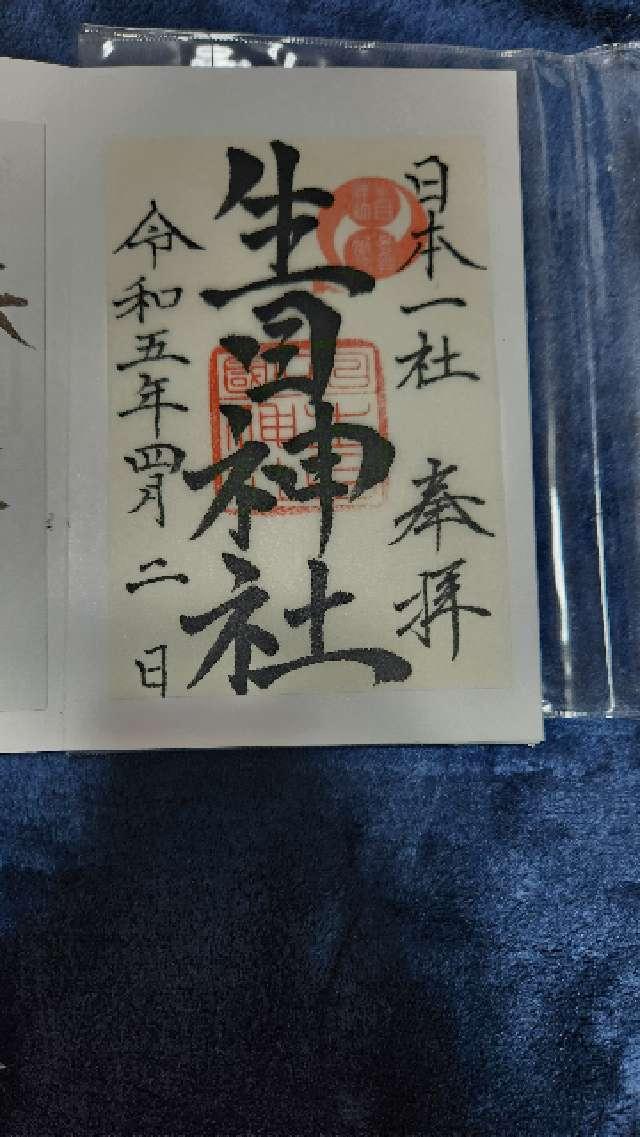 日本一社 奉拝
生目神社
令和五年四月二日